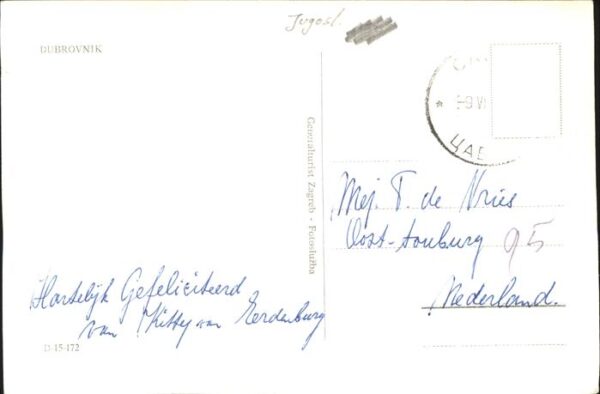 Jugosl.
DUBROVNIK
Generalturist Zagreb - Fotoslužba
Mej. T. de Vries
Oost-Souburg 95
Nederland.
Hartelijk Gefeliciteerd
van Kitty van Eerdenburg
D-15-172